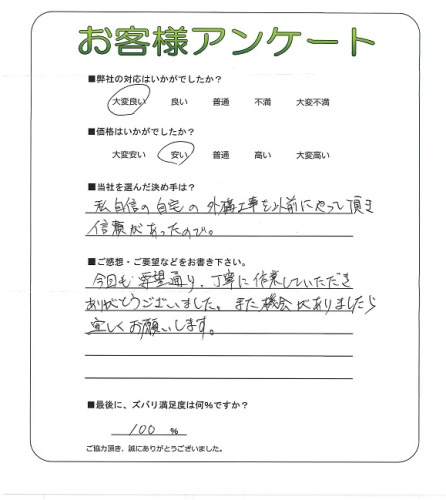 お客様アンケート
■弊社の対応はいかがでしたか?
大変良い 良い 普通 不満 大変不満
■価格はいかがでしたか?
大変安い 安い 普通 高い 大変高い
■当社を選んだ決め手は?
私自信の自宅の外構工事を以前にやって頂き
信頼があったので。
■ご感想・ご要望などをお書き下さい。
今回も要望通り、丁寧に作業していただき
ありがとうございました。また機会がありましたら
宜しくお願いします。
■最後に、ズバリ満足度は何%ですか?
100 %
ご協力頂き、誠にありがとうございました。